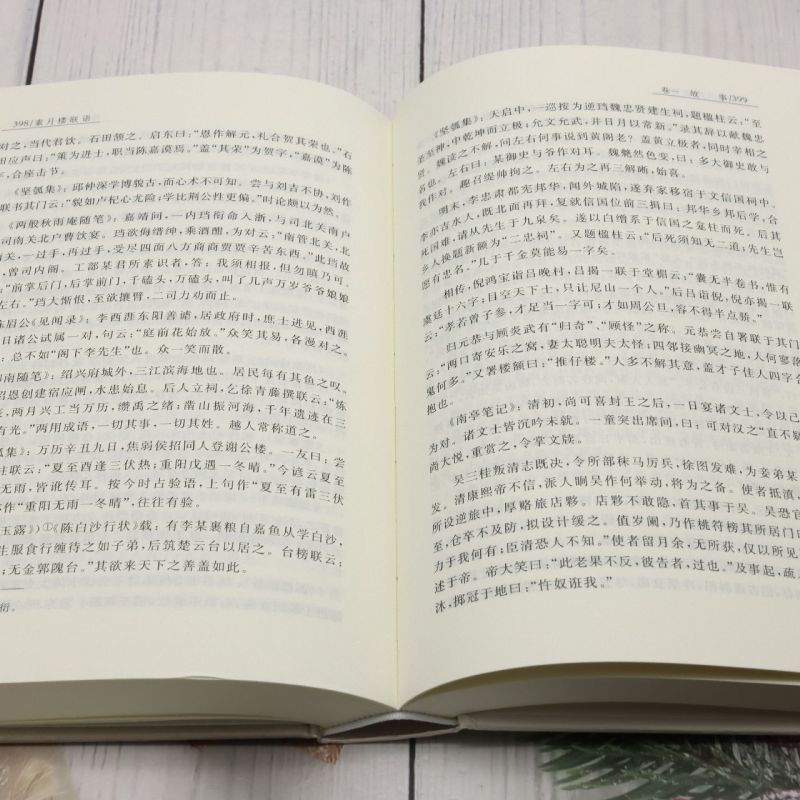 398/素月楼联语
对之,当代君饮。石田颔之。启东曰:“恩作解元,礼合贺其荣也。”石
田应声曰:“策为进士,职当陈嘉谟焉。”盖“其荣”为贺字,“嘉谟”为陈
字,合座击节。
《坚瓠集》:邱仲深学博貌古,而心术不可知。尝与刘吉不协,刘作
联书其门云:“貌如卢杞心尤险;学比荆公性更偏。”时论颇以为然。
《两般秋雨庵随笔》:嘉靖间,一内珰衔命入浙,与司北关南户
司南关北户曹饮宴。珰欲侮缙绅,乘酒酣,为对云:“南管北关,北
一过手,再过手,受尽四面八方商商贾贾辛苦东西。”此珰故
曾司内阁。工部某君所素识者,答:我须相报,但勿嗔乃可。
:“前掌后门,后掌前门,千磕头,万磕头,叫了几声万岁爷爷娘娘
左右。”珰大惭恨,至欲摧臂,二司力劝而止。
陈眉公《见闻录》:李西涯东阳善谑,居政府时,庶士进见,西涯
日诸公试属一对,句云:“庭前花始放。”众笑其易,各漫对之。
:总不如“阁下李先生”也。众一笑而散。
南随笔》:绍兴府城外,三江滨海地也。居民每有其鱼之叹。
绍恩创建宿应闸,水患始息。后人立祠,乞徐青藤撰联云:“炼
,两月兴工当万历,缵禹之绪;凿山振河海,千年遗迹在三
有光。”两用成语,一切其事,一切其姓。越人常称道之。
瓠集》:万历辛丑九日,焦弱侯招同人登谢公楼。一友曰:尝
注联云:“夏至酉逢三伏热;重阳戊遇一冬晴。”今谚云夏至
无雨,皆讹传耳。按今时占验语,上句作“夏至有雷三伏
作“重阳无雨一冬晴”,往往有验。
玉露》)①《陈白沙行状》载:有李某裹粮自嘉鱼从学白沙,
生服食行缠待之如子弟,后筑楚云台以居之。台榜联云:
;无金郭隗台。”其欲来天下之善盖如此。
衍。
卷一 故 事/399
《坚瓠集》:天启中,一巡按为逆珰魏忠贤建生祠,题楹柱云:“至
圣至神,中乾坤而立极;允文允武,并日月以常新。”录其辞以献魏忠
贤。魏读之不解,问左右何事说到黄阁老?盖黄立极者,同时宰相之
名也。左右曰:某御史与爷作对耳。魏艴然色变,曰:多大御史敢与
我作对。趣召缇帅拘之。左右为之再三解晰,始喜。
明末,李忠肃都宪邦华,闻外城陷,遂弃家移宿于文信国祠中。
李亦吉水人,既北面再拜,复就信国位前三揖曰:邦华乡邦后学,合
死国难,请从先生于九泉矣。遂以白缯系于信国之龛柱而死。后其
乡人换题新额为“二忠祠”。又题楹柱云:“后死须知无二道;先生岂
愿有忠名。”几于千金莫能易一字矣。
相传,倪鸿宝诣吕晚村,吕揭一联于堂楣云:“囊无半卷书,惟有
虞廷十六字;目空天下士,只让尼山一个人。”后吕诣倪,倪亦揭一联
云:“孝若曾子参,才足当一字可;才如周公旦,容不得半点骄。”
归元恭与顾炎武有“归奇”、“顾怪”之称。元恭尝自署联于其门
云:“两口寄安乐之窝,妻太聪明夫太怪;四邻接幽冥之地,人何寥落
鬼何多。”又署楼额曰:“推仔楼。”人多不解其意,盖才子佳人四字合
抱也。
《南亭笔记》:清初,尚可喜封王之后,一日宴诸文士,令以己
为对。诸文士皆沉吟未就。一童突出席间,曰:可对汉之“直不疑
尚大悦,重赏之,令掌文牍。
吴三桂叛清志既决,令所部秣马厉兵,徐图发难,为妾弟某
发。清康熙帝不信,派人晌吴作何举动,将为之备。使者抵滇,
所设逆旅中,厚赂旅店夥。店夥不敢隐,首其事于吴。吴恐官
至,仓卒不及防,拟设计缓之。值岁阑,乃作桃符榜其所居门曰
力于我何有;臣清恐人不知。”使者留月余,无所获,仅以所见
述于帝。帝大笑曰:“此老果不反,彼告者,过也。”及事起,疏
沐,掷冠于地曰:“忤奴诳我。”